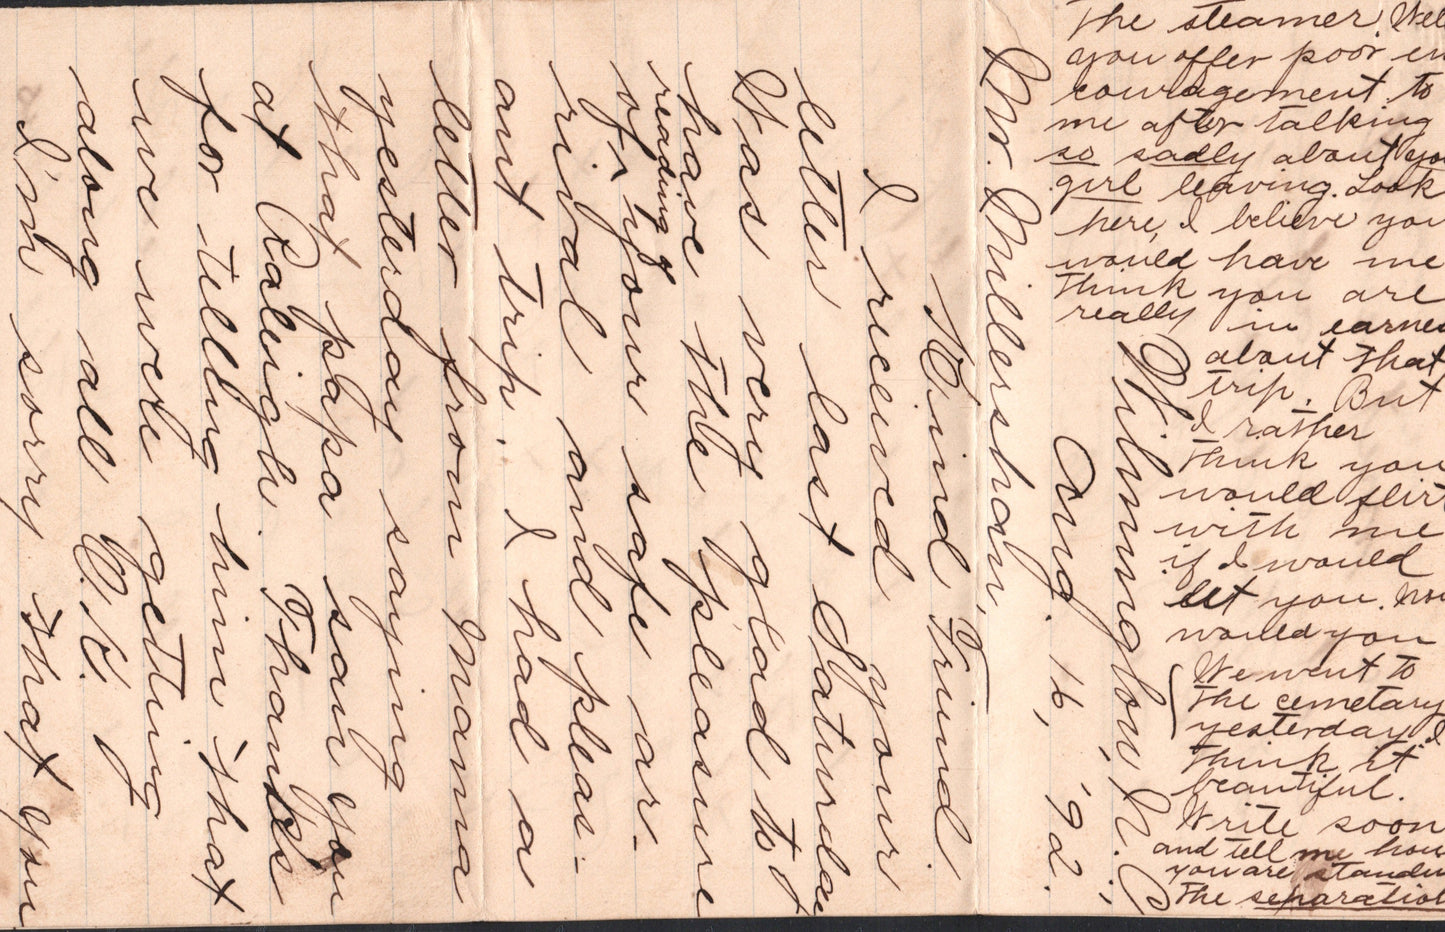 Wilmington, N. C.,
Aug. 16, '92.
Mr. Millersham,
Kind Friend.
I received your
letter last Saturday
Was very glad to
have the pleasure
reading
of ^ your safe ar-
rival and pleas-
ant trip. I had a
letter from Mama
yesterday saying
that papa saw you
at Raleigh. Thanks
for telling him that
we were getting
along all O.K.
I'm sorry that you
the steamer. Well
you offer poor en
couragement to
me after talking
so sadly about you
girl leaving. Look
here, I believe you
would have me
think you are
really in earnes
about that
trip. But
I rather
think you
would flirt
with me
if I would
let you. Now
would you
We went to
the cemetary
yesterday. I
think it
beautiful.
Write soon
and tell me how
you are standin
the separation